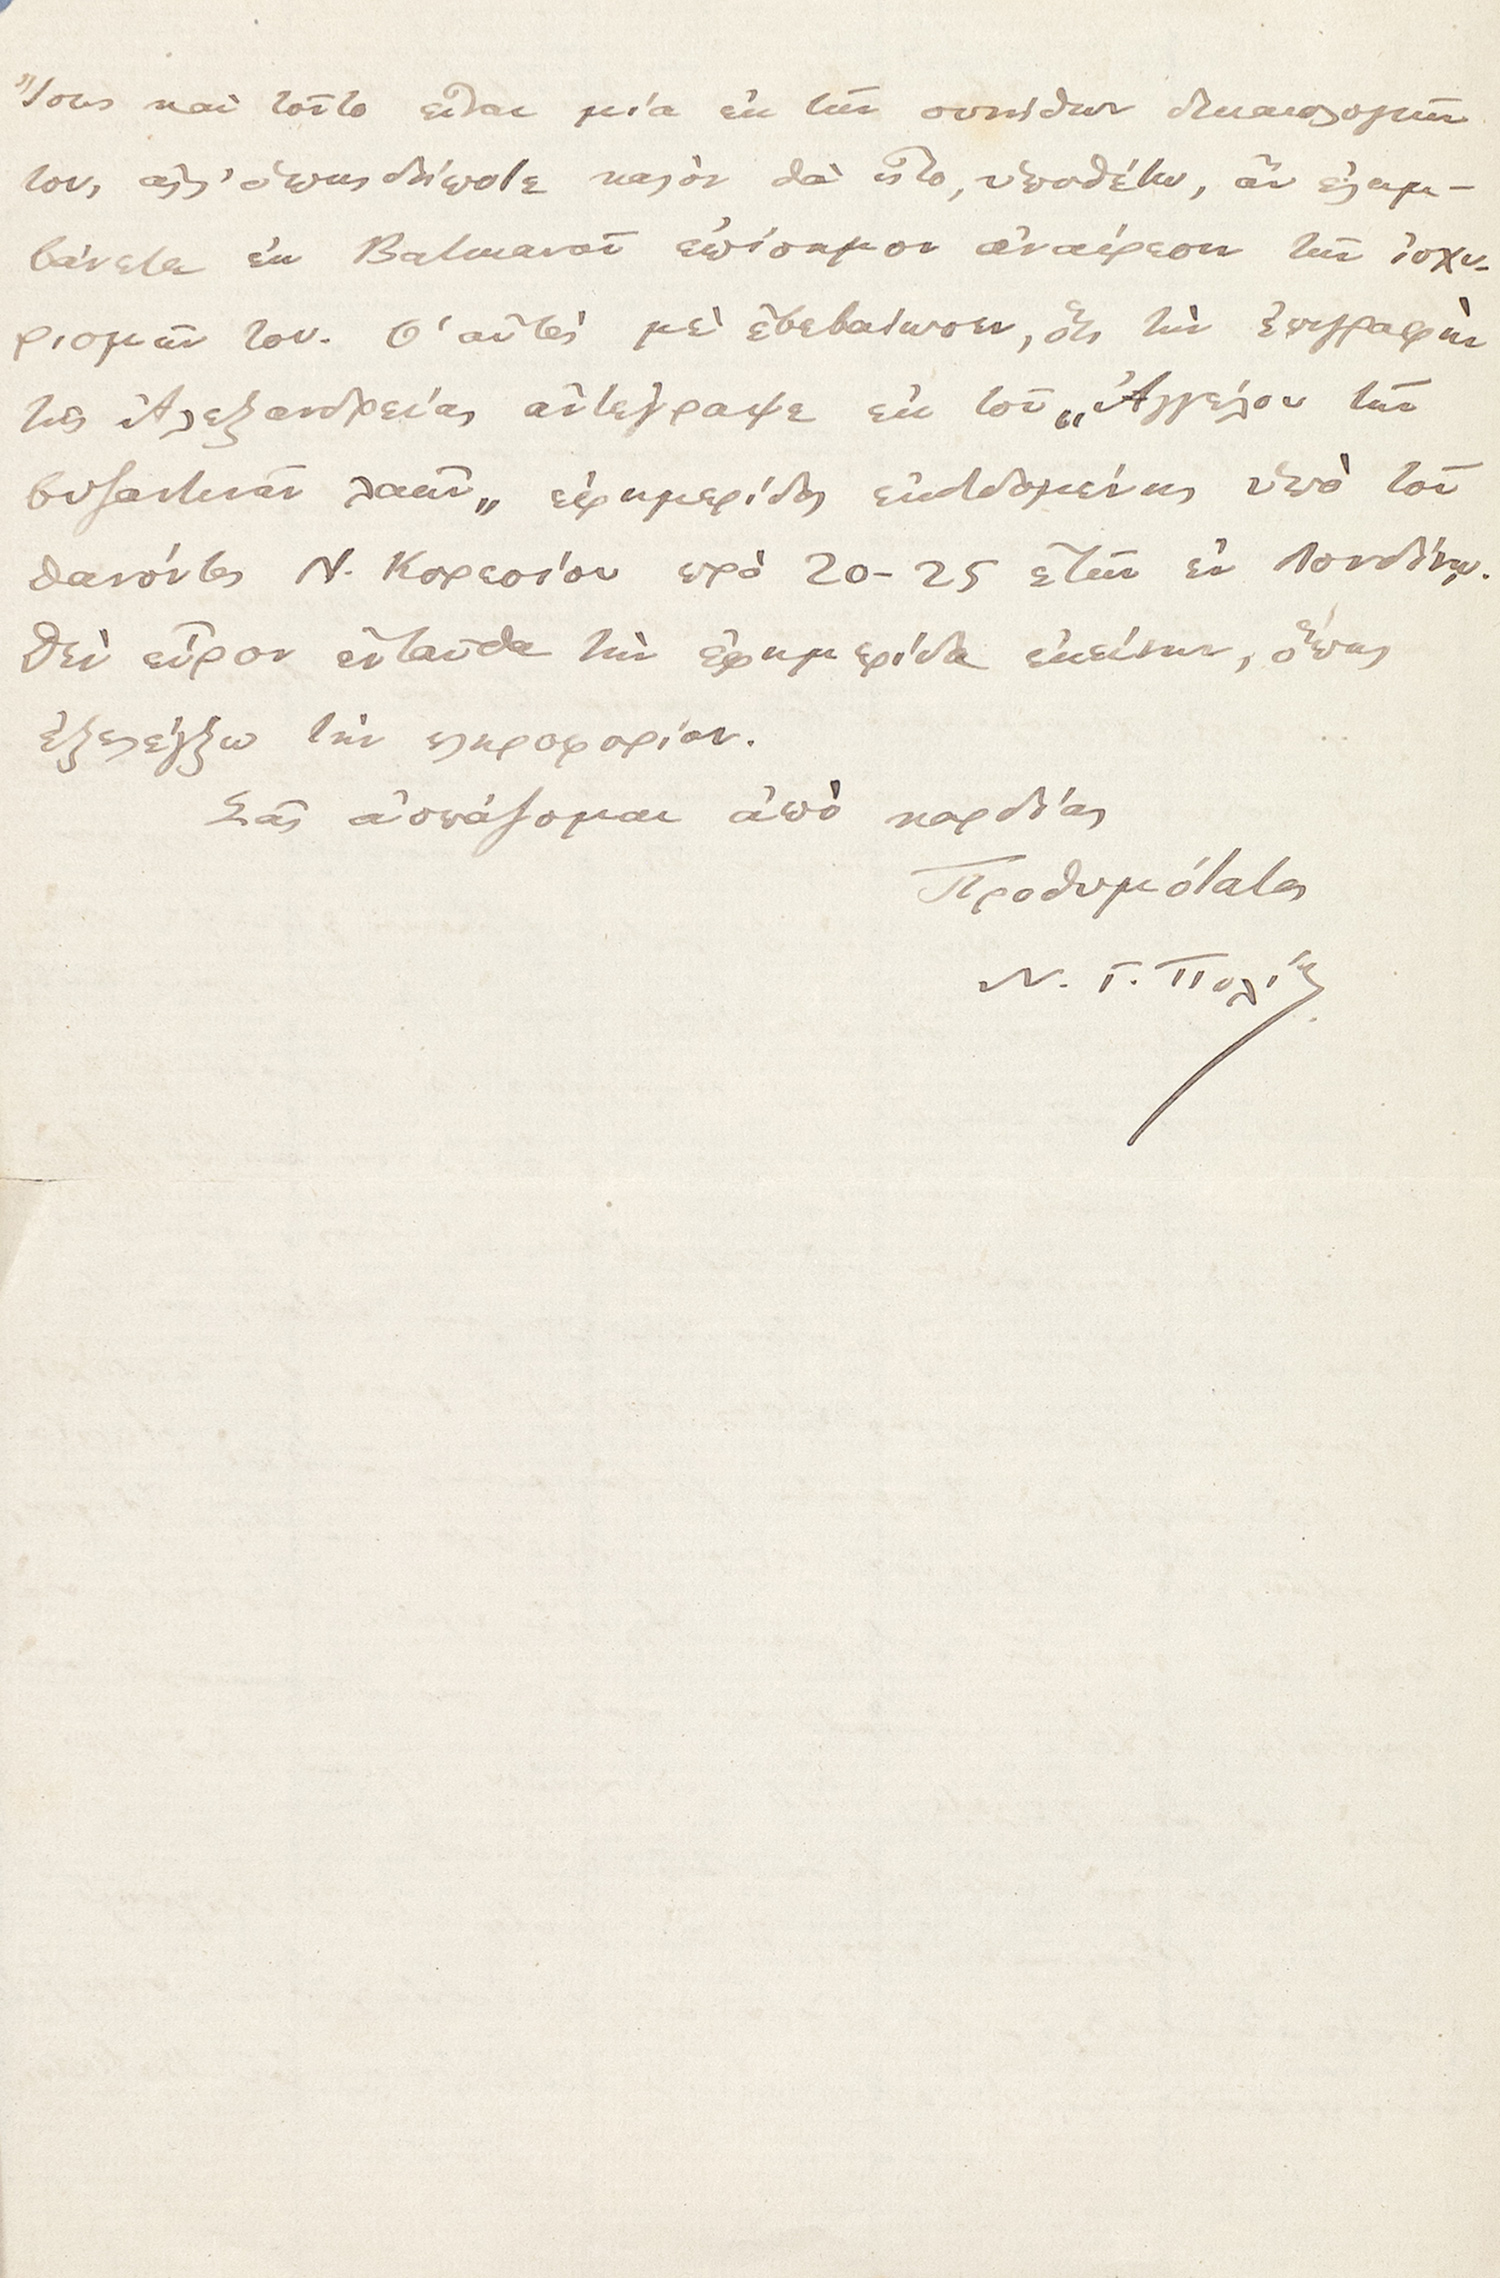 Ἴσως καὶ τοῦτο εἶναι μία ἐκ τῶν συνήθων δικαιολογιῶν
του, ἀλλ' ὁπωςδήποτε καλὸν θὰ ἦτο, ὑποθέτω, ἂν ἐλαμ-
βάνετε ἐκ Βατικανοῦ ἐπίσημον ἀναίρεσιν τῶν ἰσχυ-
ρισμῶν του. Ὁ αὐτὸς μὲ ἐβεβαίωσεν, ὅτι τὴν ἐπιγραφὴν
τῆς Ἀλεξανδρείας ἀντέγραψε ἐκ τοῦ „Ἀγγέλου τῶν
βυζαντινῶν λαῶν„ ἐφημερίδος ἐκδιδομένης ὑπὸ τοῦ
θανόντος Ν. Κορεσίου πρὸ 20-25 ἐτῶν ἐν Λονδίνῳ.
Δὲν εὗρον ἐνταῦθα τὴν ἐφημερίδα ἐκείνην, ὅπως
ἐξελέγξω τὴν πληροφορίαν.
Σᾶς ἀσπάζομαι ἀπὸ καρδίας
Προθυμότατος
Ν. Γ. Πολίτης